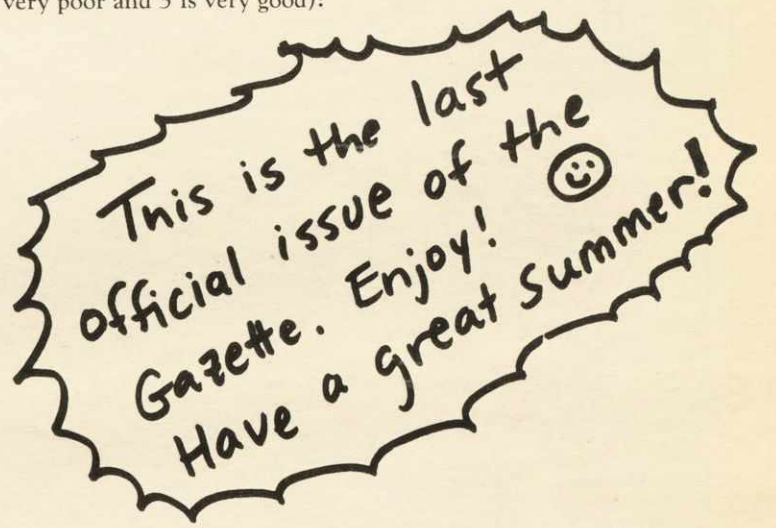 very poor and 5 is very good)?
This is the last
official issue of the
Gazette. Enjoy!
Have a great summer!